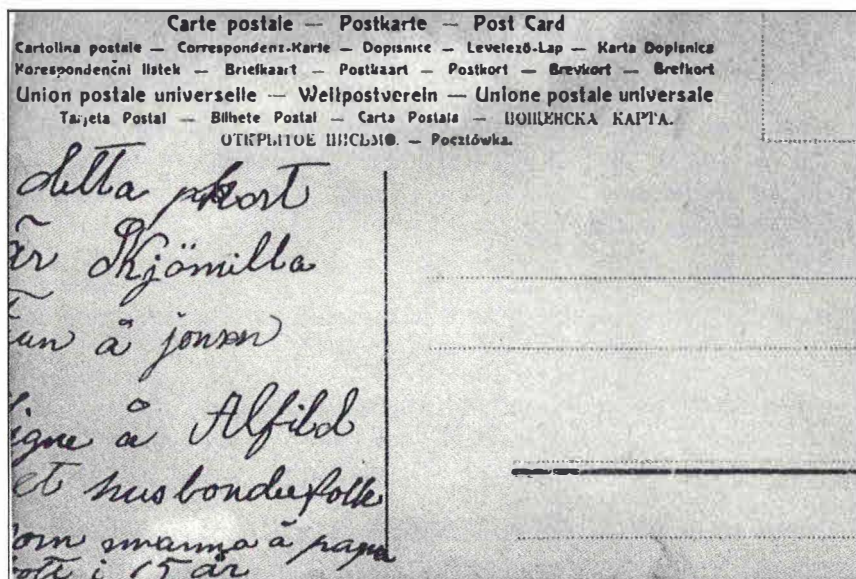 Carte postale — Postkarte — Post Card
Cartolina postale — Correspondenz-Karte — Dopisnice — Levelező-Lap — Karta Dopisnica
Korespondenčni listek — Briefkaart — Postkaart — Postkort — Brevkort — Brefkort
Union postale universelle — Weltpostverein — Unione postale universale
Tarjeta Postal — Bilhete Postal — Carta Postala — ПОЩЕНСКА КАРТА.
ОТКРЫТОЕ ПИСЬМО. — Pocztówka.
detta kort
är
å jonsen
igne å Alfild
et husbondefolk
om mamma å papa
i 15 år